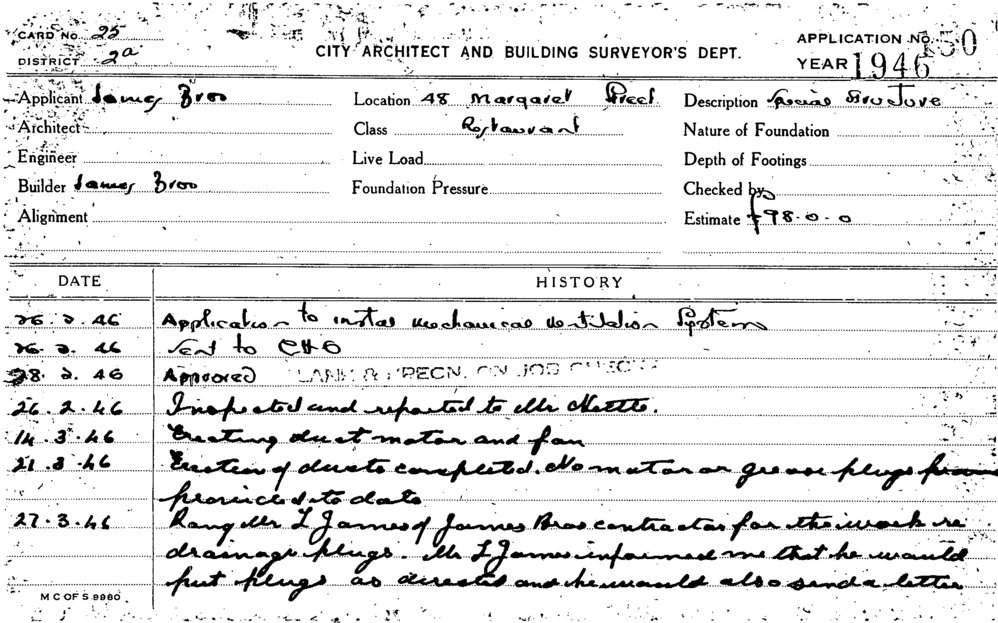 CARD No. 25
DISTRICT 2a
CITY ARCHITECT AND BUILDING SURVEYOR'S DEPT.
APPLICATION No. 150
YEAR 1946
Applicant James Bros Location 48 Margaret Street Description Special Structure
Architect Class Restaurant Nature of Foundation
Engineer Live Load Depth of Footings
Builder James Bros Foundation Pressure Checked by
Alignment Estimate £98.0.0
DATE HISTORY
26.2.46 Application to instal mechanical ventilation System
26.2.46 Sent to CHO
28.2.46 Approved PLANS & SPECN. ON JOB CHECK
26.2.46 Inspected and reported to Mr
14.3.46 Erecting duct motor and fan
21.3.46 Erection of ducts completed. No motor or grease plugs
provided to date
27.3.46 Rang Mr L James of James Bros contractor for the work re
drainage plugs. Mr L James informed me that he would
put plugs as directed and he would also send a letter
M C OF S 9980